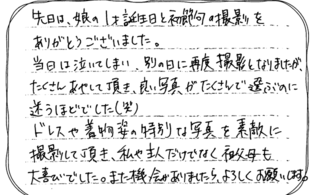 先日は、娘の1才誕生日と初節句の撮影を
ありがとうございました。
当日は泣いてしまい、別の日に再度撮影しなりましたが、
たくさんあやして頂き、良い写真がたくさんで選ぶのに
迷うほどでした(笑)
ドレスや着物等の特別な写真を素敵に
撮影して頂き、私や主人だけでなく祖父母も
大喜びでした。また機会がありましたら、よろしくお願いします。